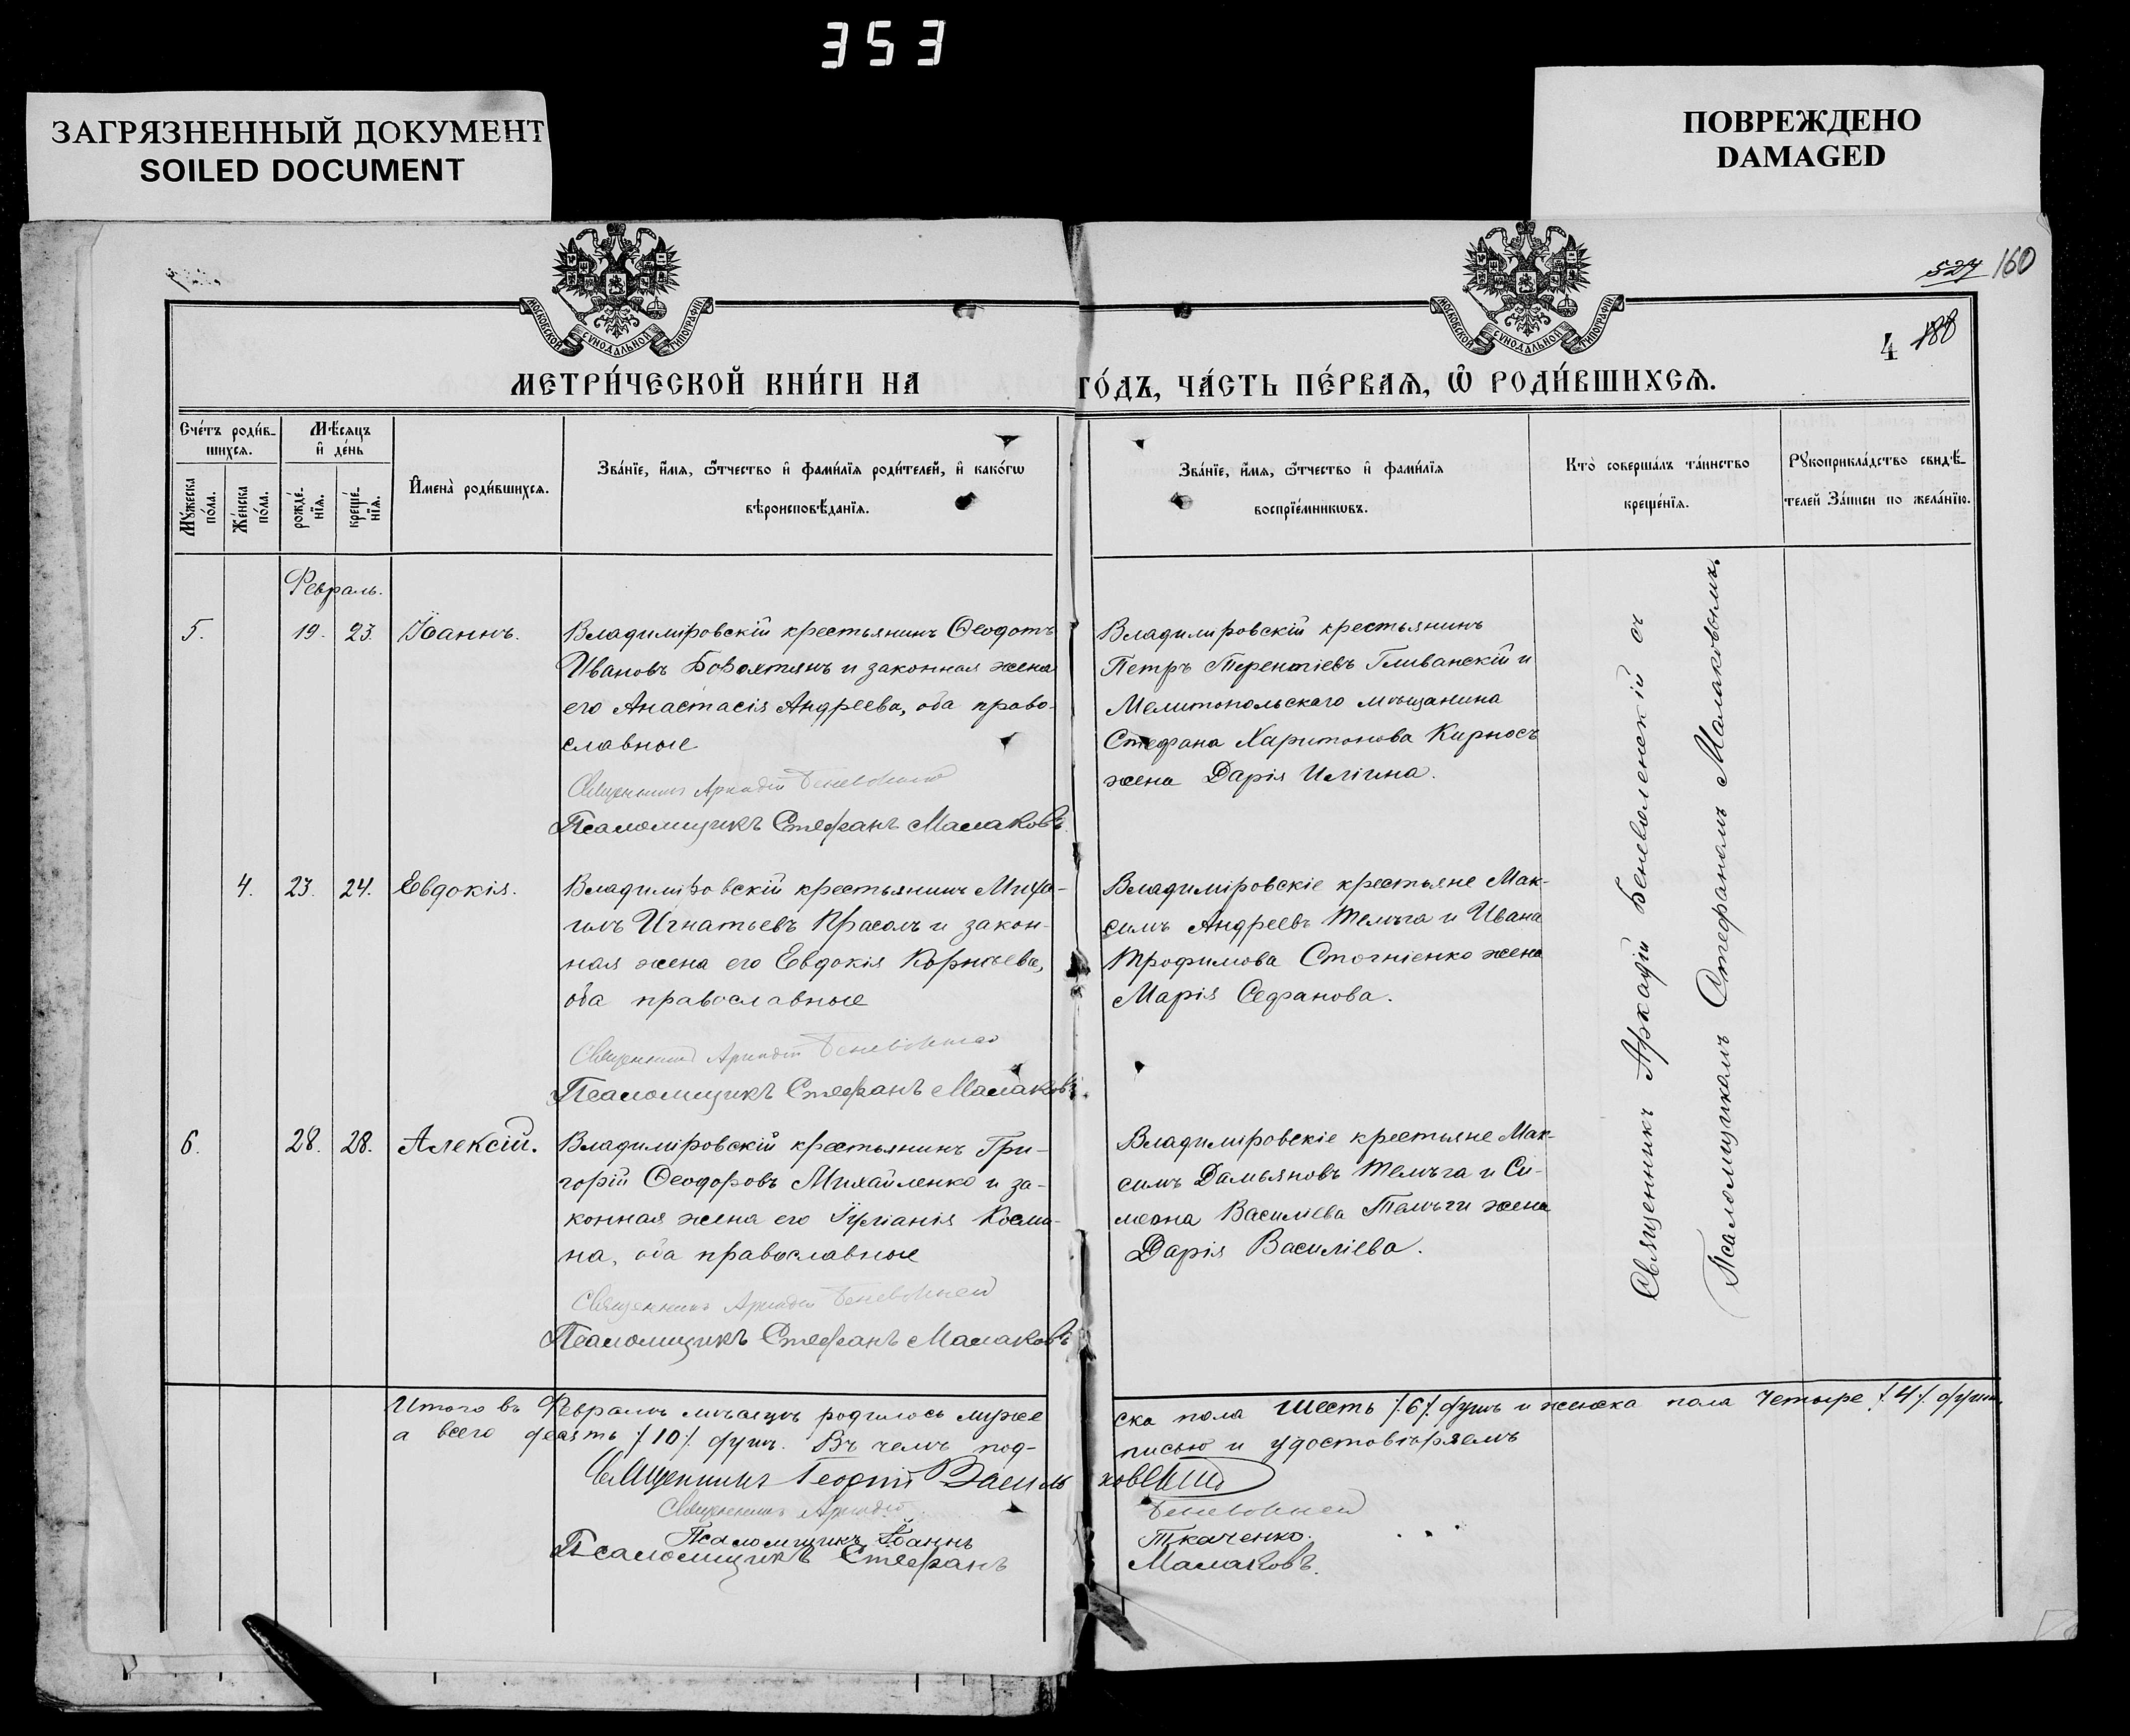 353
ЗАГРЯЗНЕННЫЙ ДОКУМЕНТ
SOILED DOCUMENT
ПОВРЕЖДЕНО
DAMAGED
МОСКОВСКОЙ СУНОДАЛЬНОЙ ТИПОГРАФІИ
МОСКОВСКОЙ СУНОДАЛЬНОЙ ТИПОГРАФІИ
527 160
4 188
МЕТРИ́ЧЕСКОЙ КНИ́ГИ НА ГО́ДЪ, ЧА́СТЬ ПЕ́РВАѦ, Ѡ҆ РОДИ́ВШИХСѦ.
Сче́тъ роди́в-
шихсѧ.
Мѣ́сѧцъ
и҆ де́нь
Мꙋ́жеска по́ла.
Же́нска по́ла.
рожде́-
нїѧ.
креще́-
нїѧ.
И҆мена̀ роди́вшихсѧ.
Зва́нїе, и҆́мѧ, ѻ҆́тчество и҆ фами́лїѧ роди́телей, и҆ како́гѡ
вѣроисповѣ́данїѧ.
Зва́нїе, и҆́мѧ, ѻ҆́тчество и҆ фами́лїѧ
воспрїе́мникѡвъ.
Кто̀ соверша́лъ та́инство
креще́нїѧ.
Рꙋкоприкла́дство свидѣ́-
телей За́писи по жела́нїю.
Февраль.
5. 19. 23. Іоаннъ.
Владиміровскій крестьянинъ Ѳеодотъ
Ивановъ Бовахтянъ и законная жена
его Анастасія Андреева, оба право-
славные
Священникъ Аркадій Беневоленскій
Псаломщикъ Стефанъ Малаковъ.
Владиміровскій крестьянинъ
Петръ Терентіевъ Гливанскій и
Мелитопольскаго мѣщанина
Стефана Харитонова Кирносъ
жена Дарія Иліина.
4. 23. 24. Евдокія.
Владиміровскій крестьянинъ Миха-
илъ Игнатьевъ Красолъ и закон-
ная жена его Евдокія Корніева,
оба православные
Священникъ Аркадій Беневоленскій
Псаломщикъ Стефанъ Малаковъ.
Владиміровскіе крестьяне Мак-
симъ Андреевъ Телѣга и Ивана
Трофимова Стогніенко жена
Марія Сефанова.
6. 28. 28. Алексій.
Владиміровскій крестьянинъ Гри-
горій Ѳеодоровъ Михайленко и за-
конная жена его Іуліанія Косми-
на, оба православные
Священникъ Аркадій Беневоленскій
Псаломщикъ Стефанъ Малаковъ
Владиміровскіе крестьяне Мак-
симъ Дамьяновъ Телѣга и Си-
меона Василіева Телѣги жена
Дарія Василіева.
Священникъ Аркадій Беневоленскій съ
Псаломщикомъ Стефаномъ Малаковымъ.
Итого въ Февралѣ мѣсяцѣ родилось муже
ска пола Шесть /6/ душъ и женска пола Четыре /4/ души,
а всего десять /10/ душъ. Въ чемъ под-
писью и удостовѣряемъ
Священникъ Георгій Василь
ковскій
Священникъ Аркадій
Беневоленскій
Псаломщикъ Іоаннъ
Ткаченко.
Псаломщикъ Стефанъ
Малаковъ.